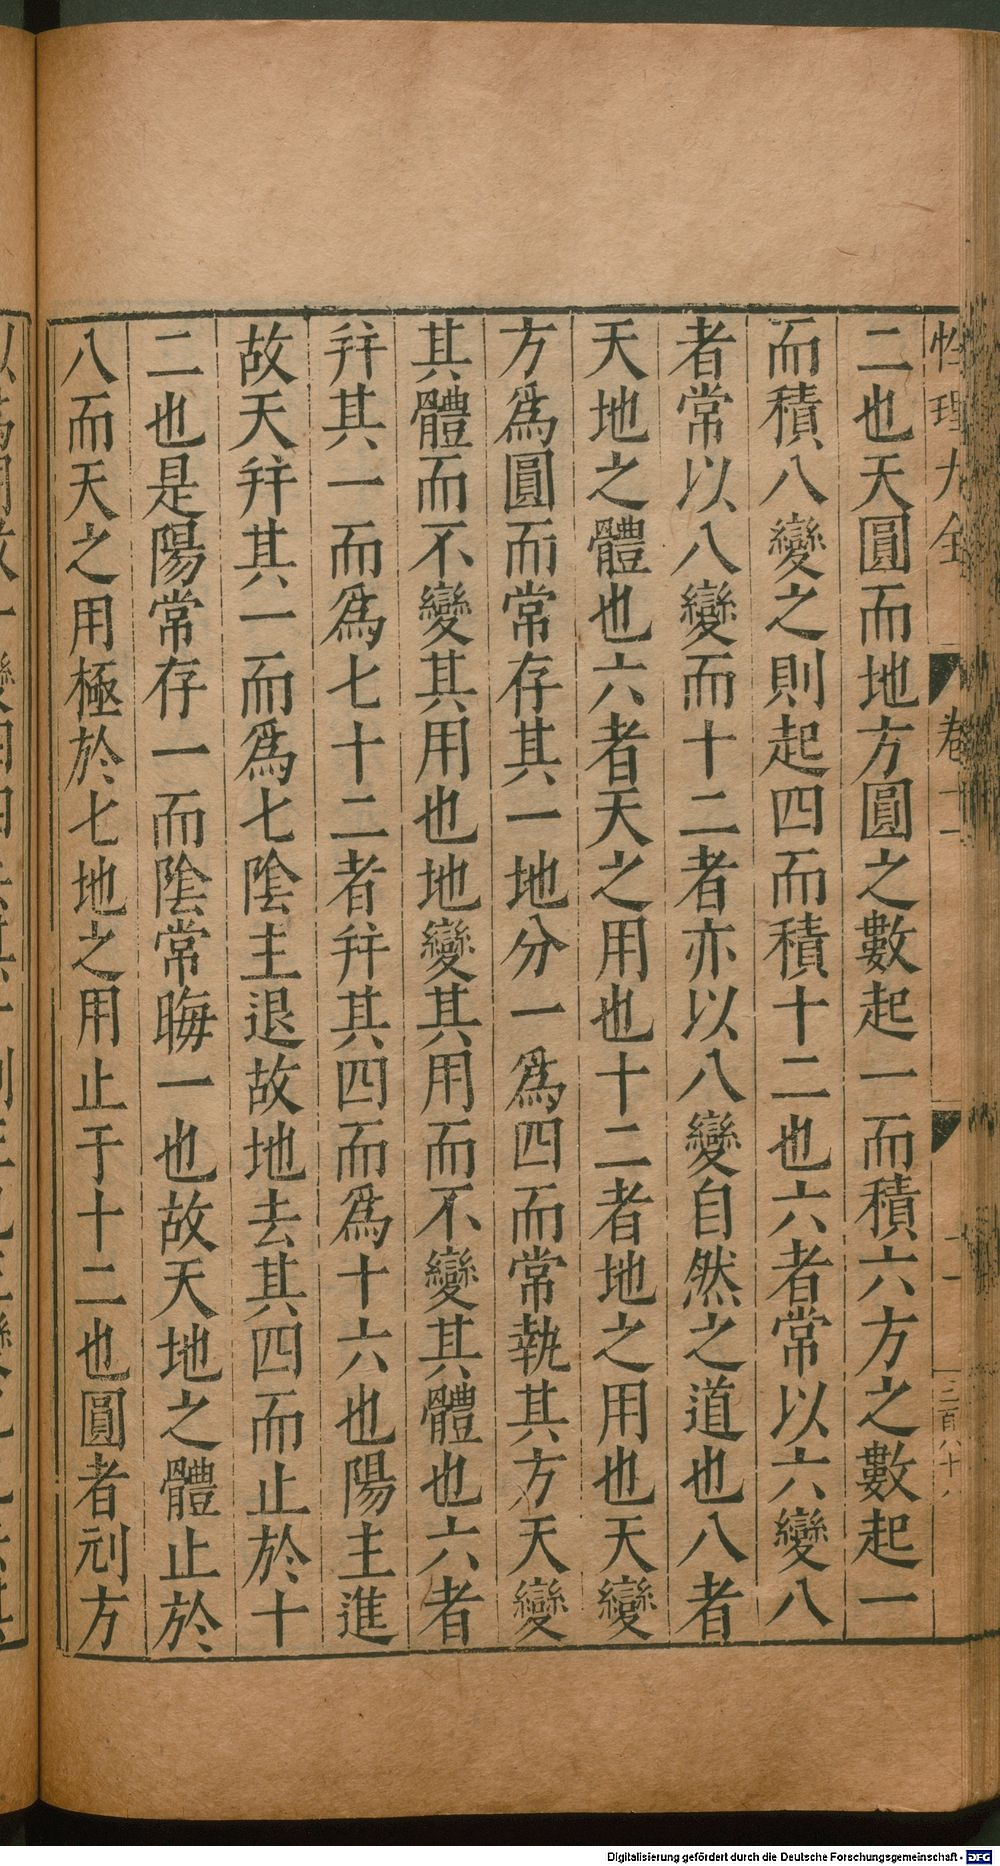 性理大全 卷十一
二也天圓而地方圓之數起一而積六方之數起一
而積八變之則起四而積十二也六者常以六變八
者常以八變而十二者亦以八變自然之道也八者
天地之體也六者天之用也十二者地之用也天變
方爲圓而常存其一地分一爲四而常執其方天變
其體而不變其用也地變其用而不變其體也六者
并其一而爲七十二者并其四而爲十六也陽主進
故天并其一而爲七陰主退故地去其四而止於十
二也是陽常存一而陰常晦一也故天地之體止於
八而天之用極於七地之用止于十二也圓者刓方
Digitalisierung gefördert durch die Deutsche Forschungsgemeinschaft - DFG